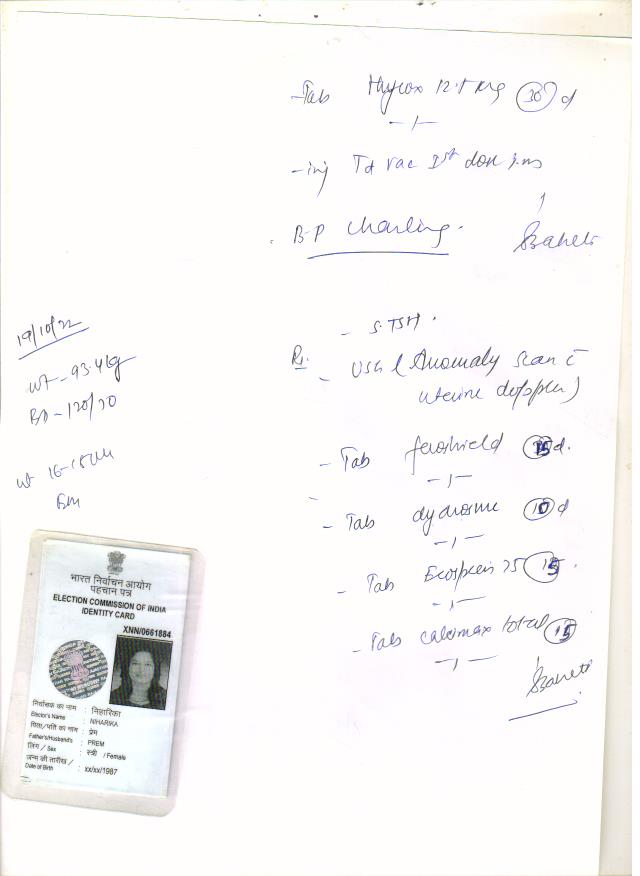 -Tab Hyrox 12.5 mg (30) d
-1-
-inj Td vac 1st dose
B.P Charting.
19/10/22
wt-93.4kg
BP-120/70
ut 16-18
- S.TSH.
Rx
- USG (Anomaly scan c
uterine doppler)
- Tab feroshield (15) d.
-1-
- Tab (10) d
-1-
- Tab Ecosprin 75 (15).
-1-
- Tab calcimax total (15)
-1-
भारत निर्वाचन आयोग
पहचान पत्र
ELECTION COMMISSION OF INDIA
IDENTITY CARD
XNN/0661884
निर्वाचक का नाम : निहारिका
Elector's Name : NIHARIKA
पिता/पति का नाम : प्रेम
Father's/Husband's : PREM
लिंग / Sex : स्त्री / Female
जन्म की तारीख /
Date of Birth : xx/xx/1987